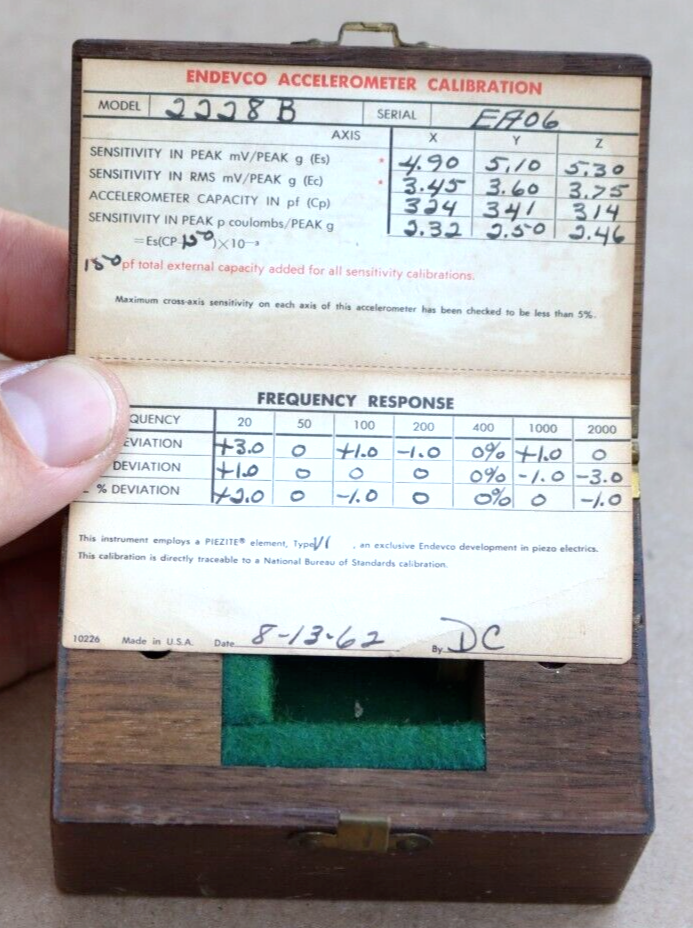 ENDEVCO ACCELEROMETER CALIBRATION
MODEL 2228B SERIAL EA06
AXIS X Y Z
SENSITIVITY IN PEAK mV/PEAK g (Es) * 4.90 5.10 5.30
SENSITIVITY IN RMS mV/PEAK g (Ec) * 3.45 3.60 3.75
ACCELEROMETER CAPACITY IN pf (Cp) 324 341 314
SENSITIVITY IN PEAK p coulombs/PEAK g 2.32 2.50 2.46
=Es(CP 150)×10⁻³
150 pf total external capacity added for all sensitivity calibrations.
Maximum cross-axis sensitivity on each axis of this accelerometer has been checked to be less than 5%.
FREQUENCY RESPONSE
QUENCY 20 50 100 200 400 1000 2000
EVIATION +3.0 0 +1.0 -1.0 0% +1.0 0
DEVIATION +1.0 0 0 0 0% -1.0 -3.0
% DEVIATION +2.0 0 -1.0 0 0% 0 -1.0
This instrument employs a PIEZITE® element, Type , an exclusive Endevco development in piezo electrics.
This calibration is directly traceable to a National Bureau of Standards calibration.
10226 Made in U.S.A. Date 8-13-62 By DC